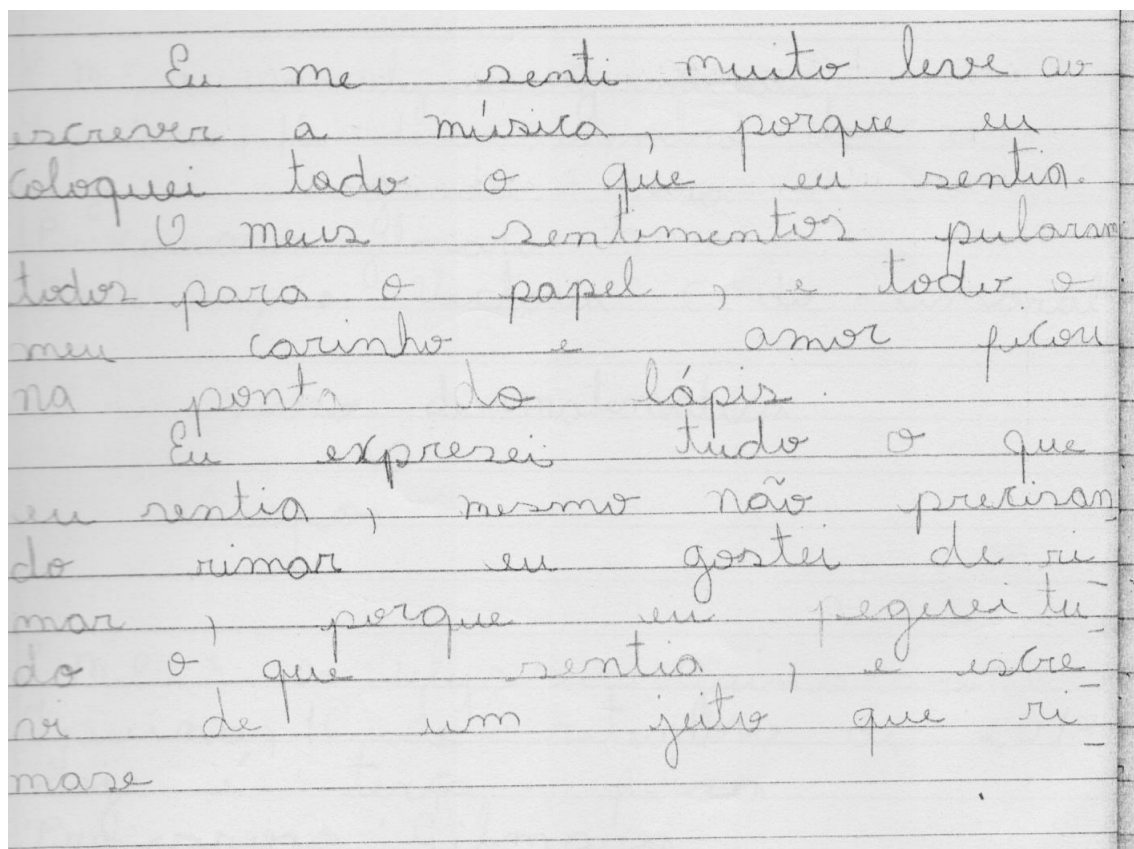 Eu me senti muito leve ao
escrever a música, porque eu
coloquei tudo o que eu sentia.
O meus sentimentos pularam
todos para o papel, e todo o
meu carinho e amor ficou
na ponta do lápis.
Eu expresei tudo o que
eu sentia, mesmo não precisan
do rimar eu gostei de ri-
mar, porque eu peguei tu-
do o que sentia, e escre-
vi de um jeito que ri-
mase